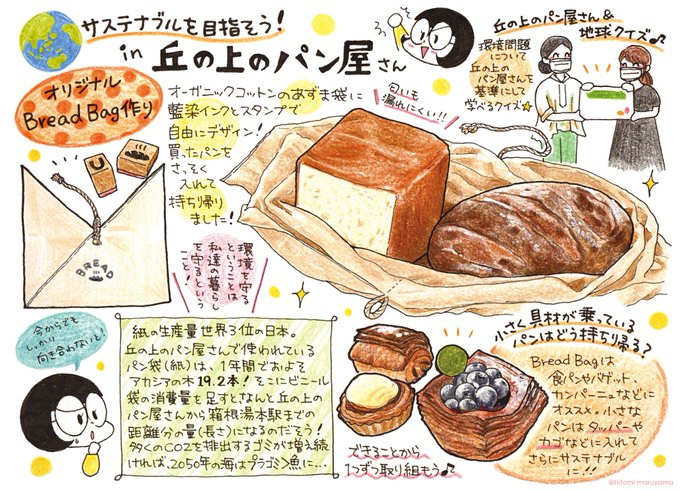 サステナブルを目指そう!
in 丘の上のパン屋さん
オリジナル
Bread Bag作り
オーガニックコットンのあずま袋に
藍染インクとスタンプで
自由にデザイン!
買ったパンを
さっそく
入れて
持ち帰り
ました!
匂いも
漏れにくい!!
丘の上のパン屋さん&
地球クイズ♪
環境問題
について
丘の上の
パン屋さんを
基準にして
学べるクイズ
BREAD
環境を守る
ということは
私達の暮らし
を守るという
こと!
今からでも
しっかり
向き合わないと!
紙の生産量世界3位の日本。
丘の上のパン屋さんで使われている
パン袋(紙)は、1年間でおよそ
アカシアの木19.2本!そこにビニール
袋の消費量を足すとなんと丘の上の
パン屋さんから箱根湯本駅までの
距離分の量(長さ)になるのだそう!
多くのCO2を排出するゴミが増え続
ければ、2050年の海はプラゴミ>魚に…
小さく具材が乗っている
パンはどう持ち帰る?
Bread Bagは
食パンやバゲット、
カンパーニュなどに
オススメ。小さな
パンはタッパーや
カゴなどに入れて
さらにサステナブル
に!!
できることから
1つずつ取り組もう♪
@hitomi maruyama